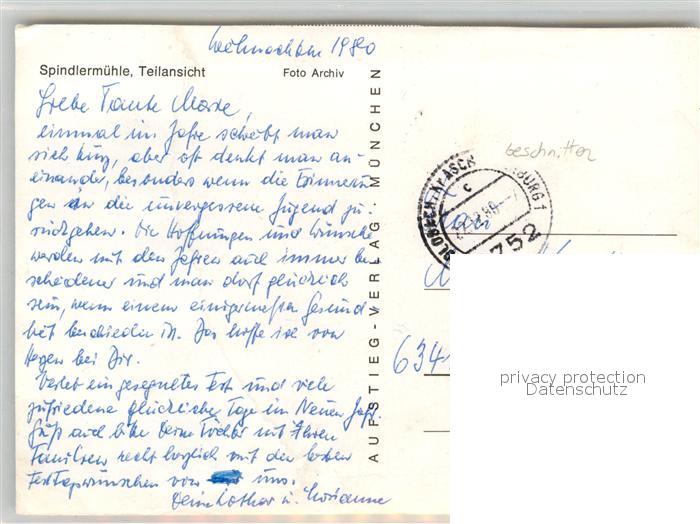 Weihnachten 1980
Spindlermühle, Teilansicht Foto Archiv
Liebe Tante Marie,
einmal im Jahre schreibt man
sich kurz, aber oft denkt man an-
einander, besonders wenn die Erinnerun
gen an die unvergessene Jugend zu-
rückgehen. Die Hoffnungen und Wünsche
werden mit den Jahren auch immer be
scheidener und man darf glücklich
sein, wenn einem einigermaßen Gesund
heit beschieden ist. Das hoffe ich von
Herzen bei Dir.
Verlebt ein gesegnetes Fest und viele
zufriedene glückliche Tage im Neuen Jahr.
Grüß auch bitte Deine Töchter mit Ihren
Familien recht herzlich mit den besten
Festtagswünschen von uns.
Deine Lothar u. Marianne
AUFSTIEG-VERLAG · MÜNCHEN
beschnitten
BURG 1
c
752
634
privacy protection
Datenschutz